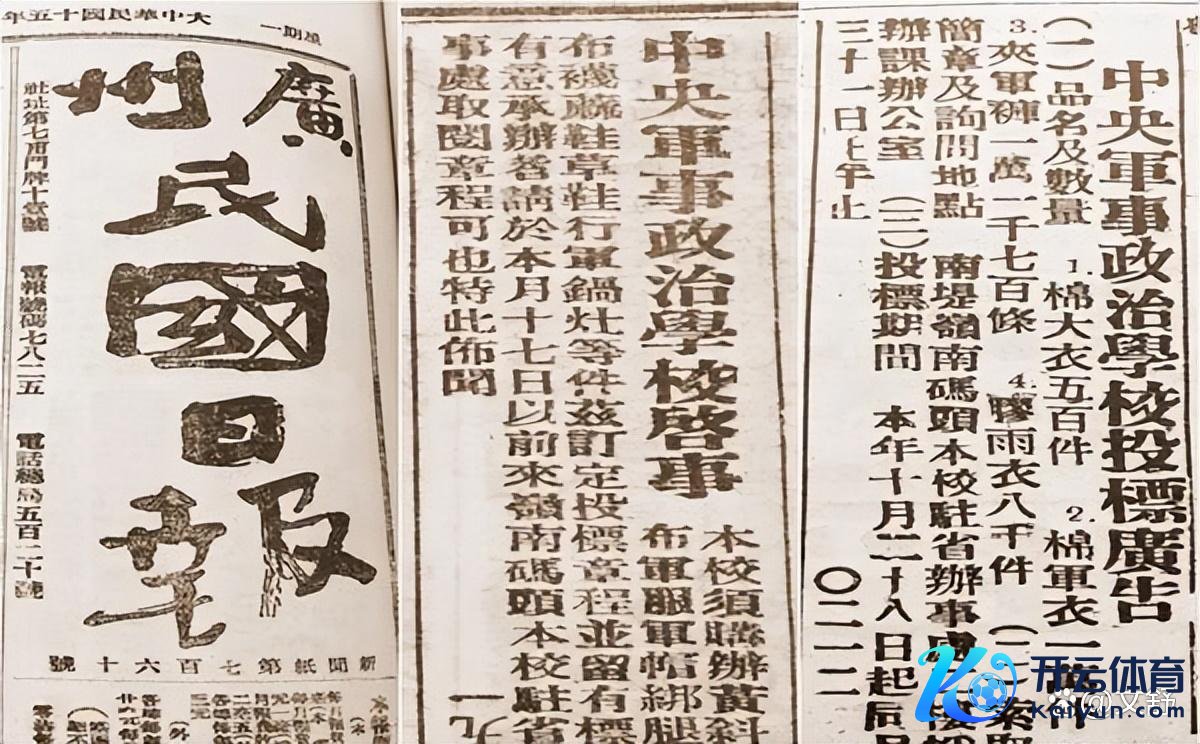 大中華民國十五年
星期一
廣州民國日報
社址第七甫門牌十壹號 電報掛碼七八二五 電話總局五百二十號
新聞紙第七百六十號
中央軍事政治學校啓事
本校須購辦黃斜
布軍服軍帽綁腿
布襪蔴鞋草鞋行軍鍋灶等件茲訂定投標章程並留有標
有意承辦者請於本月十七日以前來嶺南碼頭本校駐省
事處取閱章程可也特此佈聞
一九
中央軍事政治學校投標廣告
(一)品名及數量 1.棉大衣五百件 2.棉軍衣一萬件
3.夾軍褲一萬一千七百條 4.膠雨衣八千件 (二)索取
簡章及詢問地點 南堤嶺南碼頭本校駐省辦事處
辦課辦公室 (三)投標期間 本年十月二十八日起同月
三十一日上午止
〇二一二
开云体育
kaiyun.com